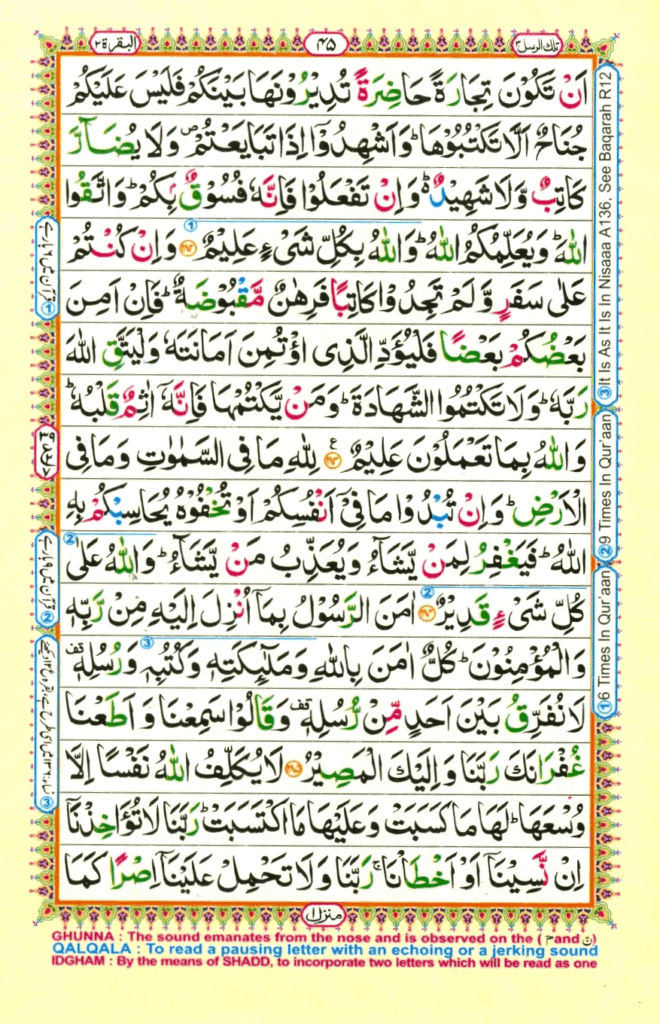 البقرة ٢
٤٥
تلك الرسل ٣
اَنۡ تَكُوۡنَ تِجَارَةً حَاضِرَةً تُدِيۡرُوۡنَهَا بَيۡنَكُمۡ فَلَيۡسَ عَلَيۡكُمۡ
جُنَاحٌ اَلَّا تَكۡتُبُوۡهَا ؕ وَاَشۡهِدُوۡۤا اِذَا تَبَايَعۡتُمۡ ص وَلَا يُضَآرَّ
كَاتِبٌ وَّلَا شَهِيۡدٌ ؕ وَاِنۡ تَفۡعَلُوۡا فَاِنَّهٗ فُسُوۡقٌۢ بِكُمۡ ؕ وَاتَّقُوا
اللّٰهَ ؕ وَيُعَلِّمُكُمُ اللّٰهُ ؕ وَاللّٰهُ بِكُلِّ شَىۡءٍ عَلِيۡمٌ وَاِنۡ كُنۡتُمۡ
عَلٰى سَفَرٍ وَّلَمۡ تَجِدُوۡا كَاتِبًا فَرِهٰنٌ مَّقۡبُوۡضَةٌ ؕ فَاِنۡ اَمِنَ
بَعۡضُكُمۡ بَعۡضًا فَلۡيُؤَدِّ الَّذِى اؤۡتُمِنَ اَمَانَتَهٗ وَلۡيَتَّقِ اللّٰهَ
رَبَّهٗ ؕ وَلَا تَكۡتُمُوا الشَّهَادَةَ ؕ وَمَنۡ يَّكۡتُمۡهَا فَاِنَّهٗۤ اٰثِمٌ قَلۡبُهٗ ؕ
وَاللّٰهُ بِمَا تَعۡمَلُوۡنَ عَلِيۡمٌ لِلّٰهِ مَا فِى السَّمٰوٰتِ وَمَا فِى
الۡاَرۡضِ ؕ وَاِنۡ تُبۡدُوۡا مَا فِىۡۤ اَنۡفُسِكُمۡ اَوۡ تُخۡفُوۡهُ يُحَاسِبۡكُمۡ بِهِ
اللّٰهُ ؕ فَيَغۡفِرُ لِمَنۡ يَّشَآءُ وَيُعَذِّبُ مَنۡ يَّشَآءُ ؕ وَاللّٰهُ عَلٰى
كُلِّ شَىۡءٍ قَدِيۡرٌ اٰمَنَ الرَّسُوۡلُ بِمَاۤ اُنۡزِلَ اِلَيۡهِ مِنۡ رَّبِّهٖ
وَالۡمُؤۡمِنُوۡنَ ؕ كُلٌّ اٰمَنَ بِاللّٰهِ وَمَلٰٓئِكَتِهٖ وَكُتُبِهٖ وَرُسُلِهٖ قف
لَا نُفَرِّقُ بَيۡنَ اَحَدٍ مِّنۡ رُّسُلِهٖ قف وَقَالُوۡا سَمِعۡنَا وَاَطَعۡنَا
غُفۡرَانَكَ رَبَّنَا وَاِلَيۡكَ الۡمَصِيۡرُ لَا يُكَلِّفُ اللّٰهُ نَفۡسًا اِلَّا
وُسۡعَهَا ؕ لَهَا مَا كَسَبَتۡ وَعَلَيۡهَا مَا اكۡتَسَبَتۡ ؕ رَبَّنَا لَا تُؤَاخِذۡنَاۤ
اِنۡ نَّسِيۡنَاۤ اَوۡ اَخۡطَاۡنَا ۚ رَبَّنَا وَلَا تَحۡمِلۡ عَلَيۡنَاۤ اِصۡرًا كَمَا
منزل ١
① 6 Times In Qur'aan
② 9 Times In Qur'aan
③ It Is As It Is In Nisaaa A136, See Baqarah R12
GHUNNA : The sound emanates from the nose and is observed on the ( م and ن )
QALQALA : To read a pausing letter with an echoing or a jerking sound
IDGHAM : By the means of SHADD, to incorporate two letters which will be read as one